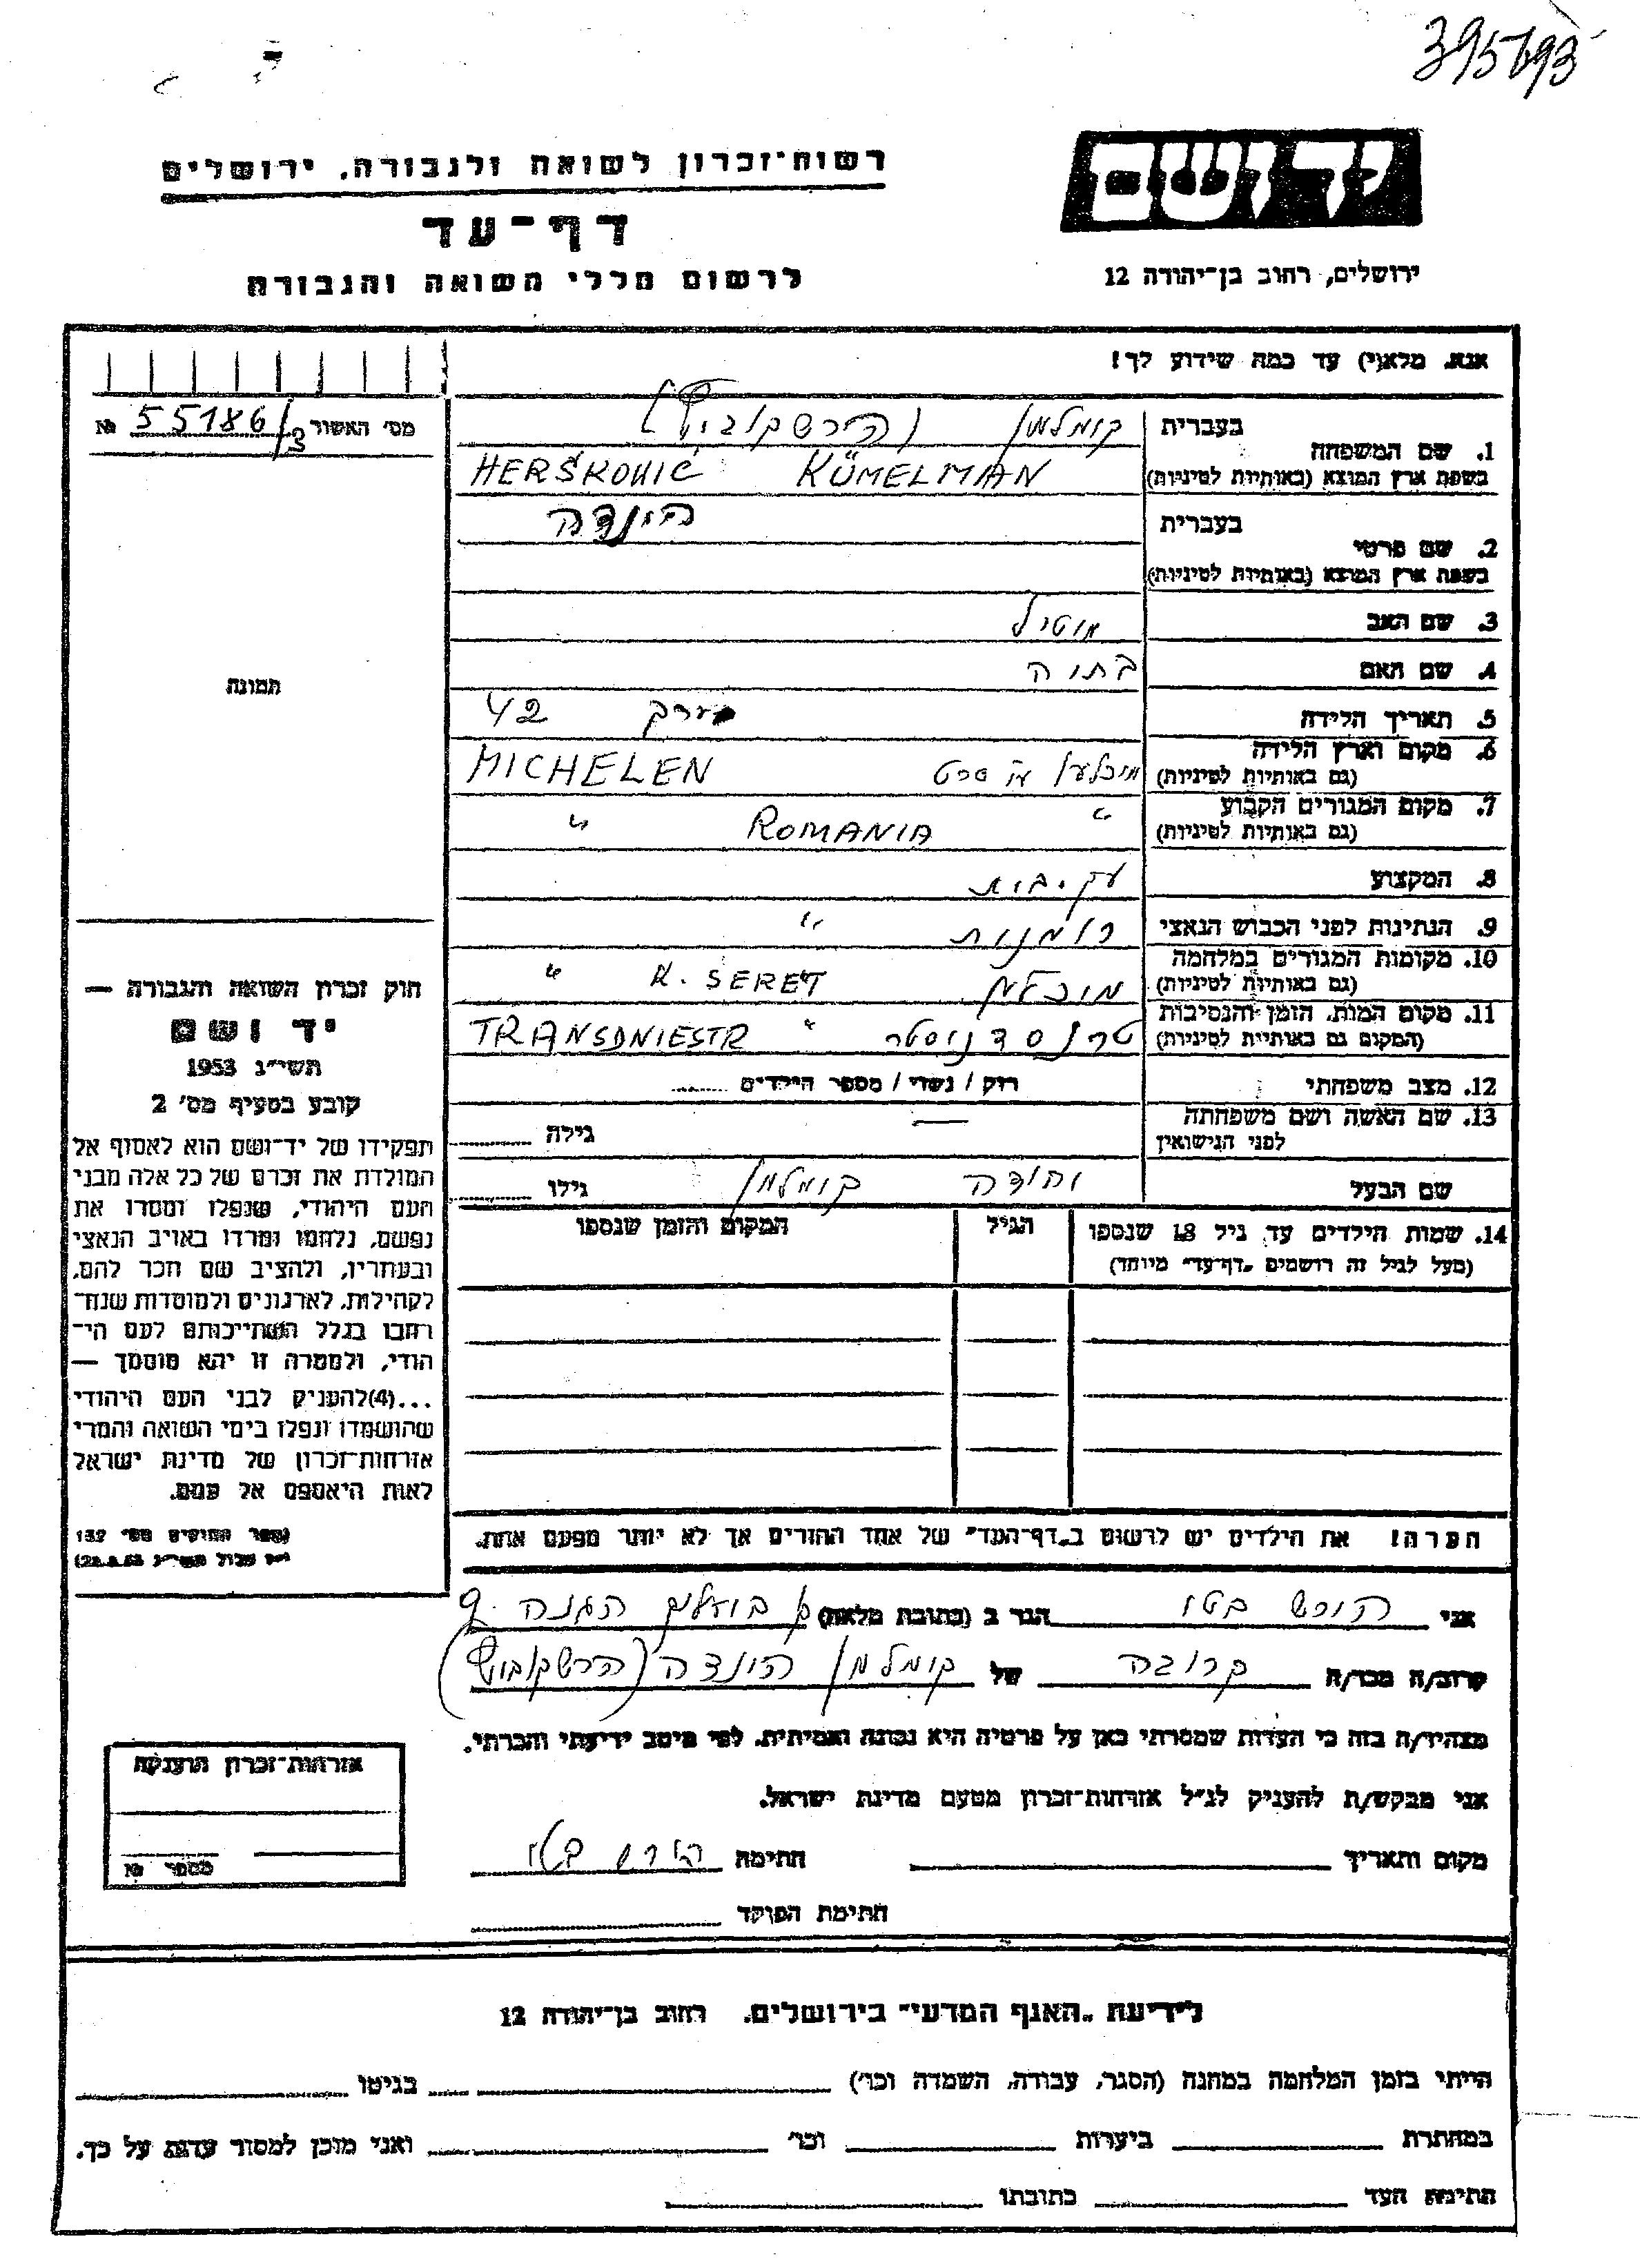 395693
יד ושם
רשות־זכרון לשואה ולגבורה, ירושלים
דף־עד
לרשום חללי השואה והגבורה
ירושלים, רחוב בן־יהודה 12
אנא, מלא(י) עד כמה שידוע לך!
מס' האשור 55186/3 №
1. שם המשפחה
בעברית קומלמן (הירשקוביץ)
בשפת ארץ המוצא (באותיות לטיניות) HERŠKOVIĆ KÜMELMAN
2. שם פרטי
בעברית הינדה
בשפת ארץ המוצא (באותיות לטיניות)
3. שם האב מוטיל
4. שם האם בתיה
5. תאריך הלידה בערך 42
6. מקום וארץ הלידה
(גם באותיות לטיניות) MICHELEN
7. מקום המגורים הקבוע
(גם באותיות לטיניות) " ROMANIA "
8. המקצוע עקיבות
9. הנתינות לפני הכבוש הנאצי רומנית "
10. מקומות המגורים במלחמה
(גם באותיות לטיניות) K. SERET "
11. מקום המות, הזמן והנסיבות
(המקום גם באותיות לטיניות) טרנסדניסטר " TRANSDNIESTR
12. מצב משפחתי רוק / נשוי / מספר הילדים
13. שם האשה ושם משפחתה
לפני הנישואין — גילה
שם הבעל יהודה קומלמן גילו
14. שמות הילדים עד גיל 18 שנספו
(מעל לגיל זה רושמים „דף־עד" מיוחד)
הגיל
המקום והזמן שנספו
הערה! את הילדים יש לרשום ב„דף־העד" של אחד ההורים אך לא יותר מפעם אחת.
תמונה
חוק זכרון השואה והגבורה —
יד ושם
תשי"ג 1953
קובע בסעיף מס' 2
תפקידו של יד־ושם הוא לאסוף אל
המולדת את זכרם של כל אלה מבני
העם היהודי, שנפלו ומסרו את
נפשם, נלחמו ומרדו באויב הנאצי
ובעוזריו, ולהציב שם וזכר להם,
לקהילות, לארגונים ולמוסדות שנח־
רבו בגלל השתייכותם לעם הי־
הודי, ולמטרה זו יהא מוסמך —
...(4) להעניק לבני העם היהודי
שהושמדו ונפלו בימי השואה והמרי
אזרחות־זכרון של מדינת ישראל
לאות היאספם אל עמם.
(ספר החוקים מס' 132
אני הירש בטי הגר ב (כתובת מלאה) ק בועלים הגנה 9
קרוב/ה מכר/ה קרובה של קומלמן הינדה (הרשקוביץ)
מצהיר/ה בזה כי העדות שמסרתי כאן על פרטיה היא נכונה ואמיתית, לפי מיטב ידיעתי והכרתי.
אני מבקש/ת להעניק לנ"ל אזרחות־זכרון מטעם מדינת ישראל.
מקום ותאריך חתימה הירש בטי
חתימת הפוקד
אזרחות־זכרון הוענקה
מספר №
לידיעת „האגף המדעי" בירושלים, רחוב בן־יהודה 12
הייתי בזמן המלחמה במחנה (הסגר, עבודה, השמדה וכו') בגיטו
במחתרת ביערות וכו' ואני מוכן למסור עדות על כך.
חתימת העד כתובתו